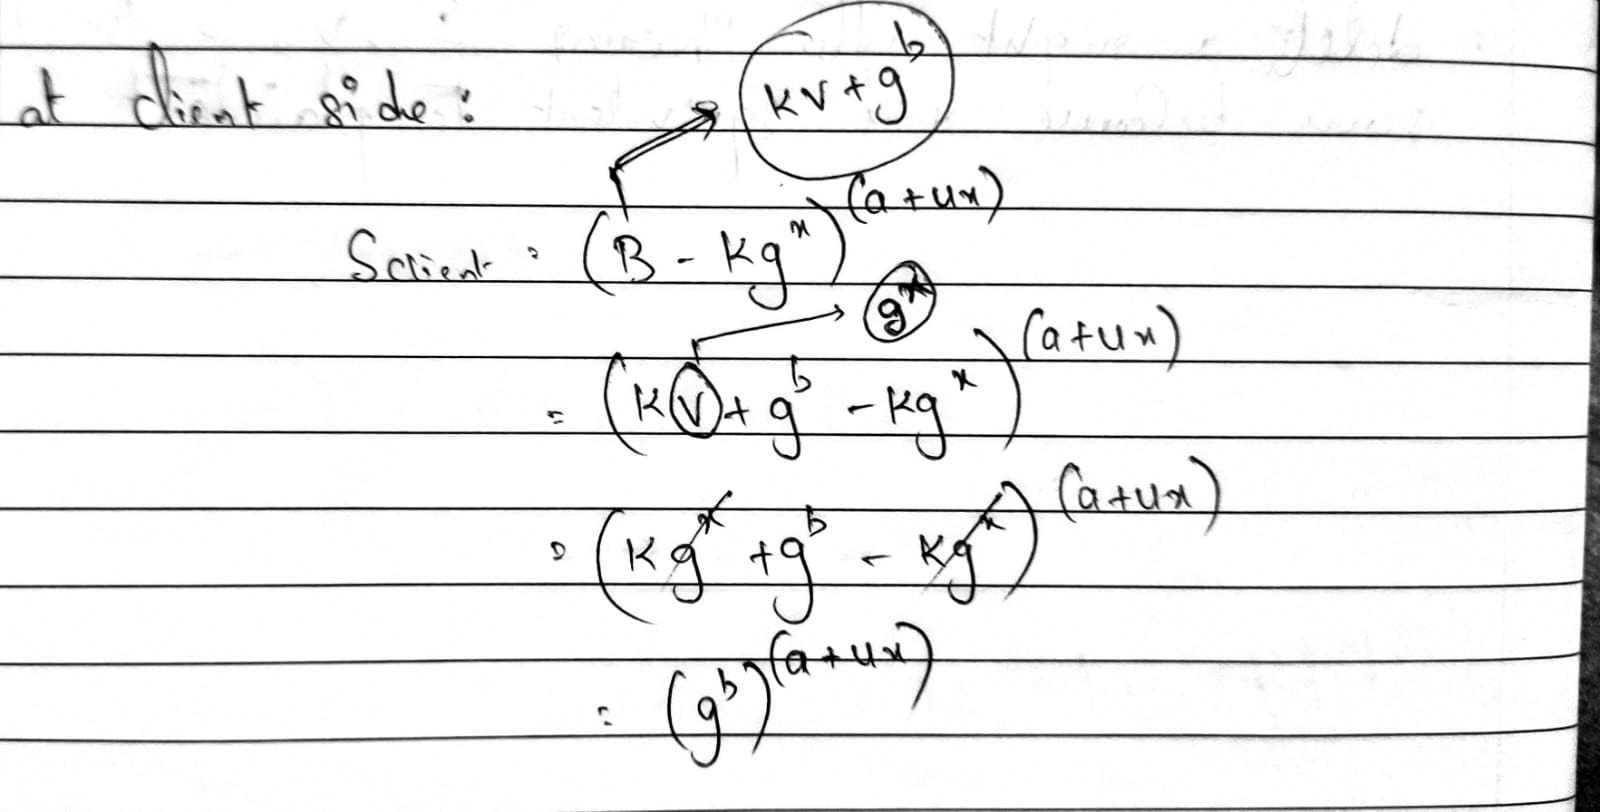 kv + g^b
at client side :
Sclient = (B - kg^x)^(a + ux)
g^x
= (kv + g^b - kg^x)^(a + ux)
= (kg^x + g^b - kg^x)^(a + ux)
= (g^b)^(a + ux)